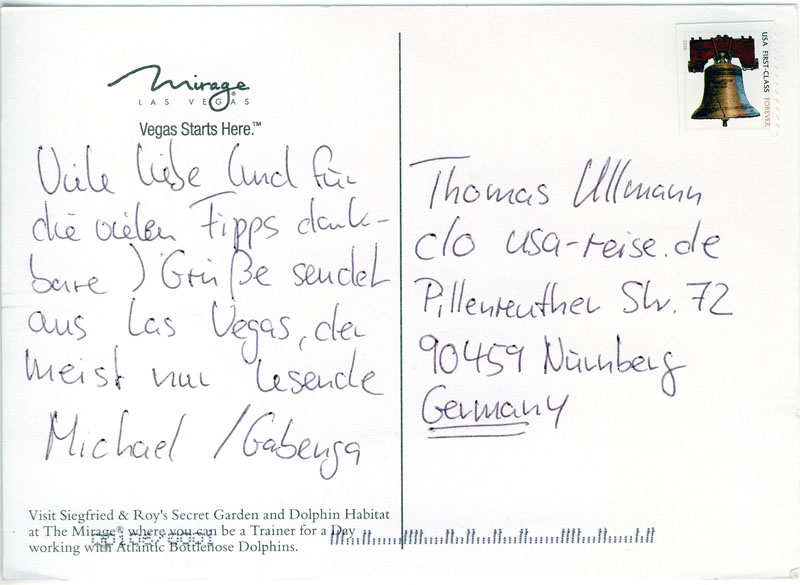 Mirage®
LAS VEGAS
Vegas Starts Here.™
Viele liebe (und für
die vielen Tipps dank-
bare) Grüße sendet
aus Las Vegas, der
meist nur lesende
Michael / Gabenga
Visit Siegfried & Roy's Secret Garden and Dolphin Habitat
at The Mirage® where you can be a Trainer for a Day
working with Atlantic Bottlenose Dolphins.
USA FIRST-CLASS FOREVER
Thomas Ullmann
c/o usa-reise.de
Pillenreuther Str. 72
90459 Nürnberg
Germany